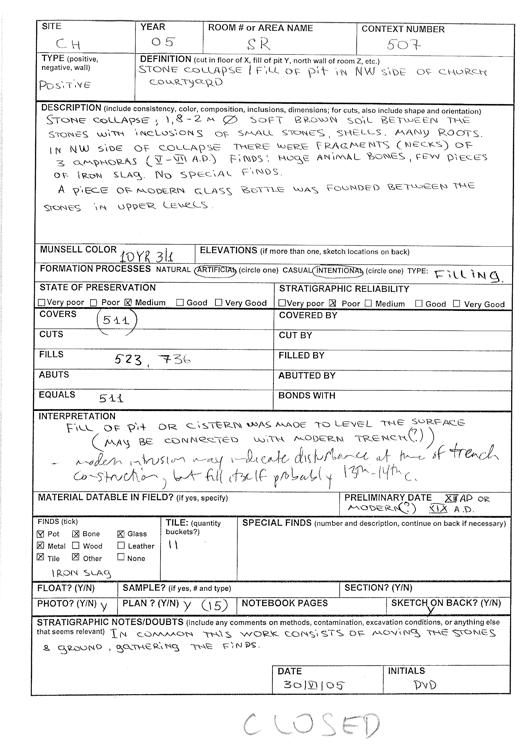 SITE YEAR ROOM # or AREA NAME CONTEXT NUMBER
CH 05 SR 507
TYPE (positive, negative, wall) DEFINITION (cut in floor of X, fill of pit Y, north wall of room Z, etc.)
POSITIVE STONE COLLAPSE / FILL OF PIT IN NW SIDE OF CHURCH
COURTYARD
DESCRIPTION (include consistency, color, composition, inclusions, dimensions; for cuts, also include shape and orientation)
STONE COLLAPSE; 1,8-2 M Ø SOFT BROWN SOIL BETWEEN THE
STONES WITH INCLUSIONS OF SMALL STONES, SHELLS. MANY ROOTS.
IN NW SIDE OF COLLAPSE THERE WERE FRAGMENTS (NECKS) OF
3 AMPHORAS (V-VII A.D.) FINDS: HUGE ANIMAL BONES, FEW PIECES
OF IRON SLAG. NO SPECIAL FINDS.
A PIECE OF MODERN GLASS BOTTLE WAS FOUNDED BETWEEN THE
STONES IN UPPER LEVELS.
MUNSELL COLOR 10YR 3/1 ELEVATIONS (if more than one, sketch locations on back)
FORMATION PROCESSES NATURAL ARTIFICIAL (circle one) CASUAL INTENTIONAL (circle one) TYPE: FILLING.
STATE OF PRESERVATION STRATIGRAPHIC RELIABILITY
☐Very poor ☐ Poor ☒ Medium ☐ Good ☐ Very Good ☐Very poor ☒ Poor ☐ Medium ☐ Good ☐ Very Good
COVERS 511 COVERED BY
CUTS CUT BY
FILLS 523, 736 FILLED BY
ABUTS ABUTTED BY
EQUALS 511 BONDS WITH
INTERPRETATION
FILL OF PIT OR CISTERN WAS MADE TO LEVEL THE SURFACE
(MAY BE CONNECTED WITH MODERN TRENCH(?))
- modern intrusion may indicate disturbance at time of trench
construction, but fill itself probably 13th-14th c.
MATERIAL DATABLE IN FIELD? (if yes, specify) PRELIMINARY DATE AP OR
MODERN(?) XIX A.D.
FINDS (tick) TILE: (quantity buckets?) SPECIAL FINDS (number and description, continue on back if necessary)
☒ Pot ☒ Bone ☒ Glass 11
☒ Metal ☐ Wood ☐ Leather
☒ Tile ☒ Other ☐ None
IRON SLAG
FLOAT? (Y/N) SAMPLE? (if yes, # and type) SECTION? (Y/N)
PHOTO? (Y/N) Y PLAN ? (Y/N) Y (15) NOTEBOOK PAGES SKETCH ON BACK? (Y/N)
Y
STRATIGRAPHIC NOTES/DOUBTS (include any comments on methods, contamination, excavation conditions, or anything else
that seems relevant) IN COMMON THIS WORK CONSISTS OF MOVING THE STONES
& GROUND, GATHERING THE FINDS.
DATE INITIALS
30/VI/05 DVD
CLOSED